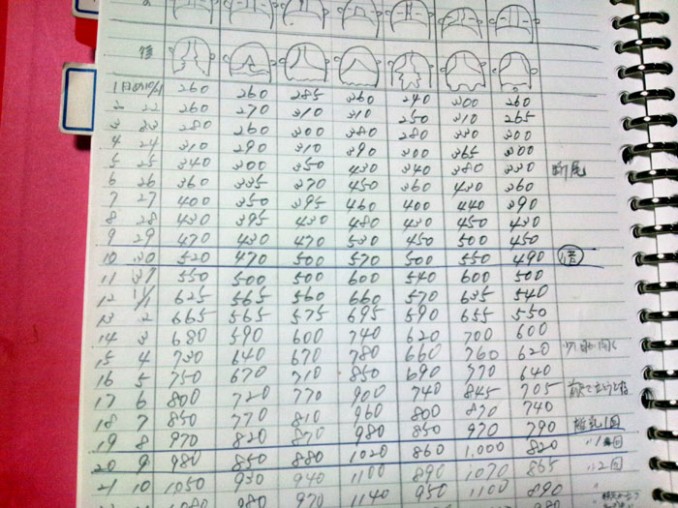 後
1日目10/21 260 260 285 260 240 300 260
2 22 260 270 310 310 250 310 265
3 23 280 260 300 380 280 330 300
4 24 310 290 310 390 300 365 300
5 25 340 300 350 430 340 380 330 断尾
6 26 360 335 370 450 360 430 360
7 27 400 350 395 460 400 440 390
8 28 430 395 430 480 430 450 430
9 29 470 430 470 530 450 500 450
10 30 520 470 500 570 500 550 490
11 31 550 500 500 600 540 600 500
12 11/1 625 565 560 660 570 635 540
13 2 665 565 575 695 590 655 550
14 3 680 590 600 740 620 700 600
15 4 730 640 670 780 660 760 620
16 5 750 670 710 850 690 770 640
17 6 800 720 770 900 740 845 705
18 7 850 770 810 960 800 870 740
19 8 970 820 870 980 850 970 790 離乳1回
20 9 980 850 880 1020 860 1,000 820
21 10 1050 930 940 1100 890 1070 865 〃2回
980 970 1140 950 1100 890